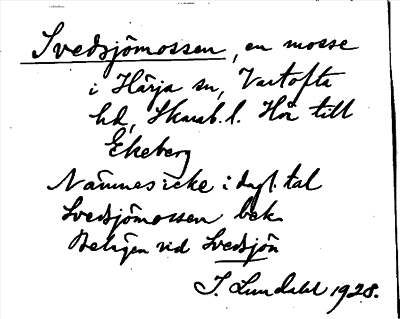 Svedsjömossen, en mosse
i Härja sn, Vartofta
hd, Skarab. l. Hör till
Ekeberg
Nämnes icke i dagl. tal
Svedsjömossen bek.
Belägen vid Svedsjön
J. Lundahl 1928.